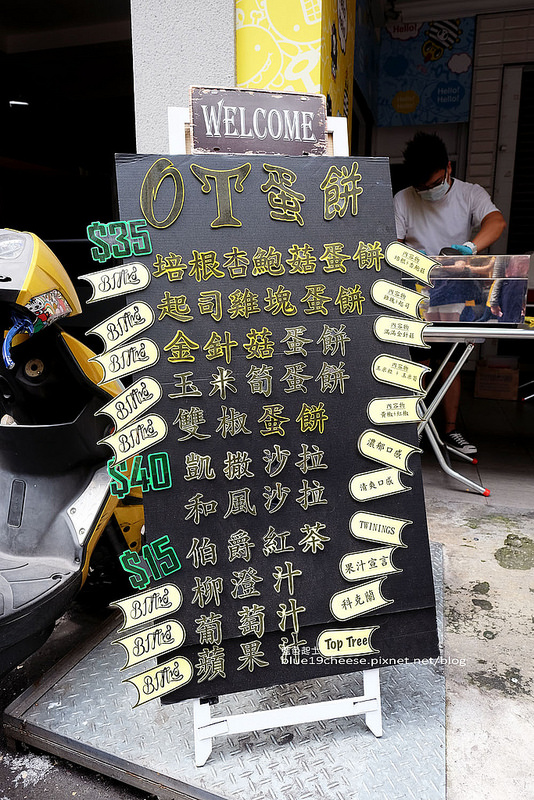 WELCOME
OT蛋餅
$35
培根杏鮑菇蛋餅
起司雞塊蛋餅
金針菇蛋餅
玉米筍蛋餅
雙椒蛋餅
濃郁口感
$40
凱撒沙拉
清爽口感
和風沙拉
TWININGS
$15
伯爵紅茶
果汁宣言
柳澄汁
科克蘭
葡萄汁
Top Tree
蘋果汁
藍色起士
blue19cheese.pixnet.net/blog